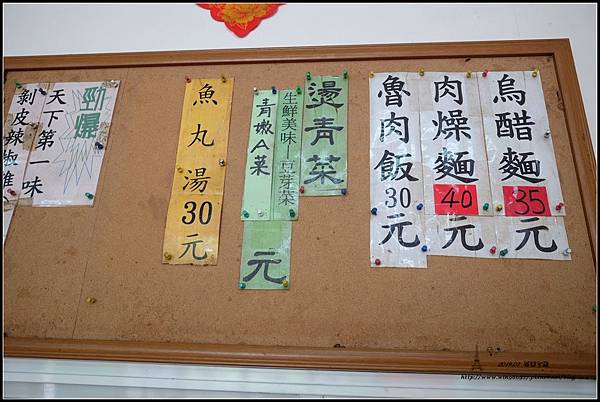 烏醋麵35元
肉燥麵40元
魯肉飯30元
燙青菜
生鮮美味-豆芽菜
青嫩A菜
元
魚丸湯30元
勁爆
天下第一味
剝皮辣椒雞